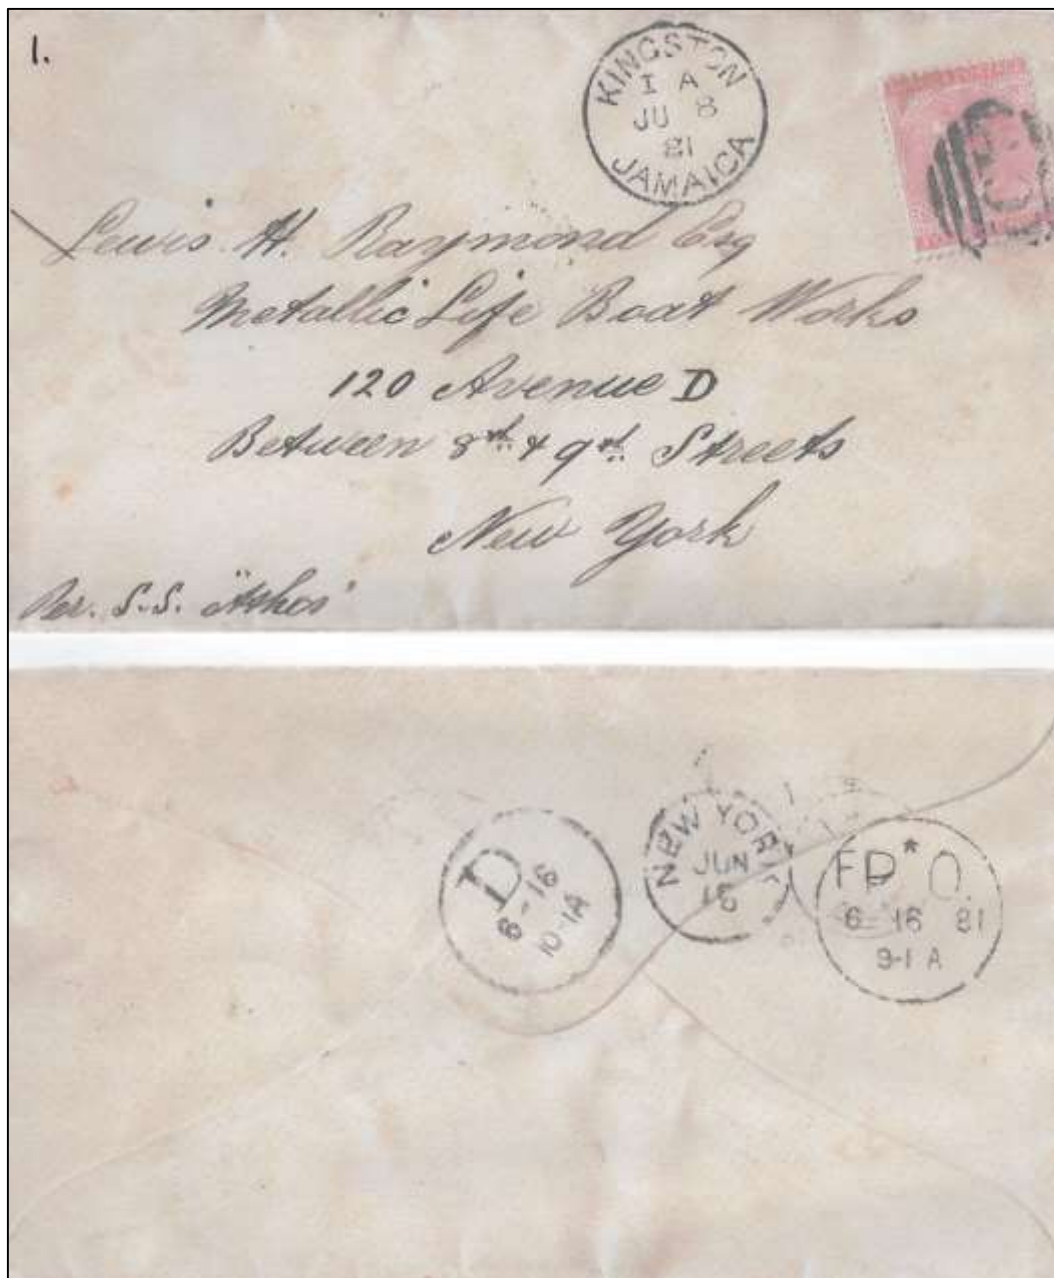 1.
KINGSTON
I A
JU 8
81
JAMAICA
Lewis H. Raymond Esq
Metallic Life Boat Works
120 Avenue D
Between 8th & 9th Streets
New York
Per. S.S. "Athos"
D
6-16
10-1A
NEW YORK
JUN
16
F.P.*O.
6 16 81
9-1 A